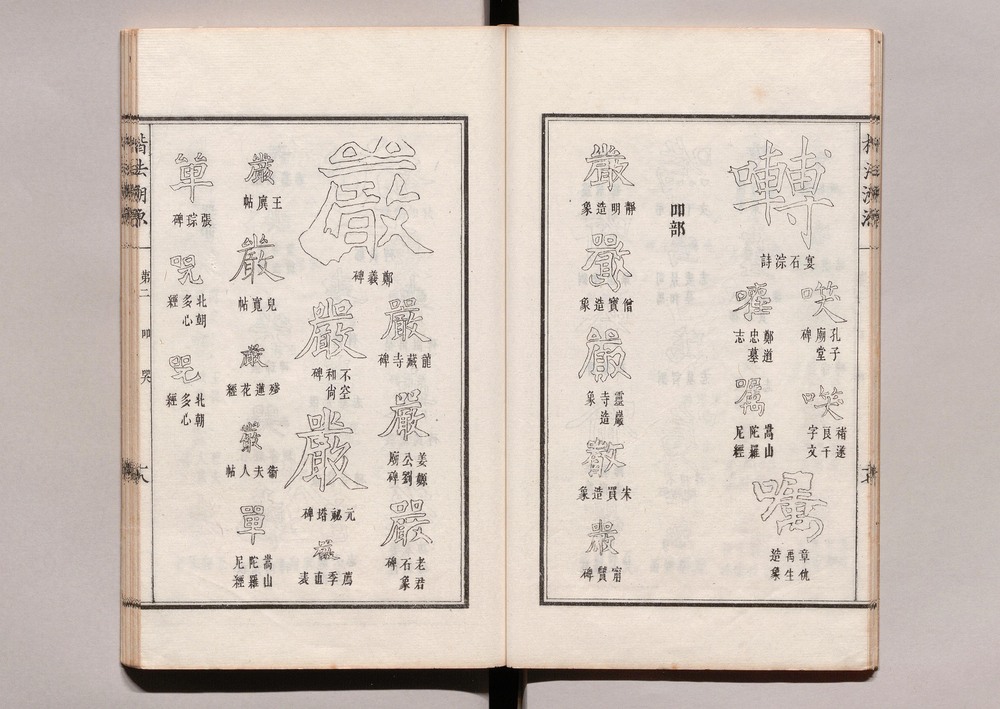 囀
宴石淙詩
噗
孔子廟堂碑
噗
褚遂良千字文
囑
章仇禹生造象
嚾
鄭道忠墓志
囑
嵩山陀羅尼經
吅部
嚴
靜明造象
嚴
僧寶造象
嚴
靈巖寺造象
嚴
宋買造象
嚴
甯贙碑
嚴
鄭羲碑
嚴
龍藏寺碑
嚴
姜纂公劉廟碑
嚴
老君石象碑
嚴
不空和尚碑
嚴
元祕塔碑
嚴
薦季直表
嚴
王廙帖
嚴
兒寬帖
嚴
殘蓮花經
嚴
衛夫人帖
單
嵩山陀羅尼經
単
張琮碑
咒
北朝多心經
咒
北朝多心經
楷法溯源
第二
吅
哭